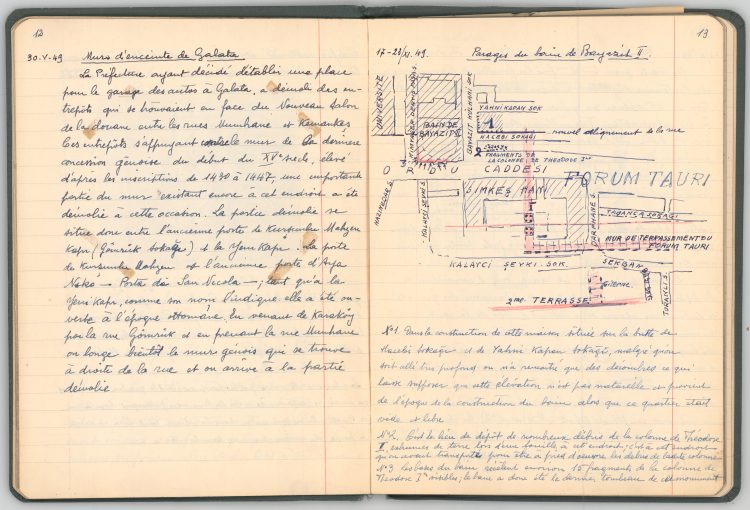 12
30.V.49 Murs d'enceinte de Galata
La Préfecture ayant décidé d'établir une place
pour le garage des autos à Galata, a démoli des en-
trepôts qui se trouvaient en face du Nouveau Salon
de la douane entre les rues Mumhane et Kemankeş
Ces entrepôts s'appuyant le mur de la dernière
concession génoise du début du XVe siècle, élevé
d'après les inscriptions de 1430 à 1447, une importante
partie du mur existant encore à cet endroit a été
démolie à cette occasion. La partie démolie se
situe donc entre l'ancienne porte de Kurşunlu Mahzen
Kapı (Gömrük Sokağı) et la Yeni Kapı. La porte
de Kurşunlu Mahzen est l'ancienne porte d'Aya
Niko — Porta da San Nicola —; tant qu'à la
Yeni Kapı, comme son nom l'indique elle a été ou-
verte à l'époque ottomane. En venant de Karaköy
par la rue Gömrük et en prenant la rue Mumhane
on longe bientôt le mur génois qui se trouve
à droite de la rue et on arrive à la partie
démolie
13
17-28/XI.49. Parages du bain de Bayazit II.
UNIVERSITÉ
BAIN DE
BAYAZIT II
BAYAZIT KÜLHANI SOK
YAHNI KAPAN SOK
1
HACEBI SOKAĞI
nouvel alignement de la rue
2
FRAGMENTS DE
LA COLONNE DE THEODOSE Ier
3
ORDU CADDESI
FORUM TAURI
SIMKEŞ HAN
TARPHANE S.
TABANCA SOKAĞI
MUR DE TERRASSEMENT DU
FORUM TAURI
KALAYCI ŞEVKI SOK.
SEKBAN
Citerne
2me TERRASSE
No 1. Dans la construction de cette maison située sur la butte de
Hacebi Sokağı et de Yahni Kapan Sokağı, malgré qu'on
soit allé très profond on n'a rencontré que des décombres ce qui
laisse supposer que cette élévation n'est pas naturelle et provient
de l'époque de la construction du bain alors que ce quartier était
vide et libre
No 2. C'est le lieu de dépôt de nombreux débris de la colonne de Théodose
I, exhumés de terre lors d'une fouille à cet endroit; c'est à cet endroit
qu'on avait transportés pour être à pied d'oeuvre les débris de ladite colonne
No 3 les bases du bain recèlent environ 15 fragments de la colonne de
Théodose Ier visibles; le bain a donc été le dernier tombeau de ce monument